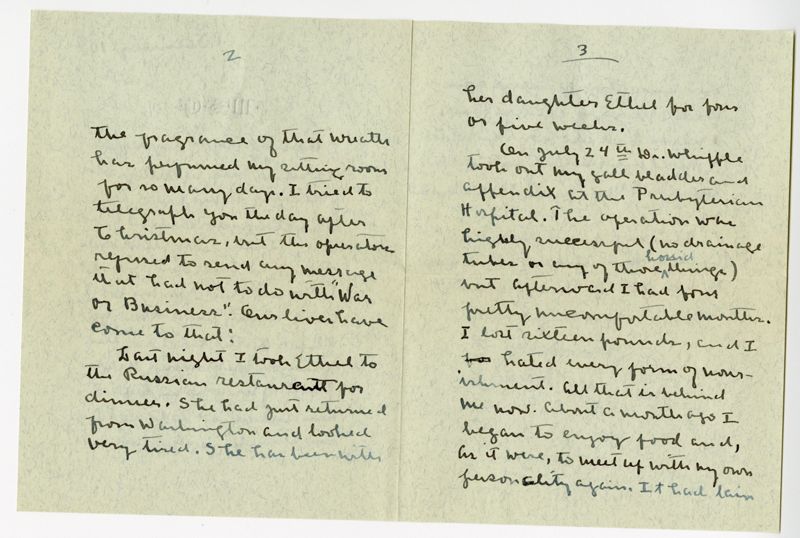 2
the fragrance of that wreath
has perfumed my sitting room
for so many days. I tried to
telegraph you the day after
Christmas, but the operators
refused to send any message
that had not to do with "War
or Business". Our lives have
come to that!
Last night I took Ethel to
the Russian restaurant for
dinner. She had just returned
from Washington and looked
very tired. She has been with
3
her daughter Ethel for four
or five weeks.
On July 24th Dr. Whipple
took out my gall bladder and
appendix at the Presbyterian
Hospital. The operation was
highly successful (no drainage
tubes or any of those horrid things)
but afterward I had four
pretty uncomfortable months.
I lost sixteen pounds, and I
hated every form of nour-
ishment. All that is behind
me now. About a month ago I
began to enjoy food and,
as it were, to meet up with my own
personality again. It had lain